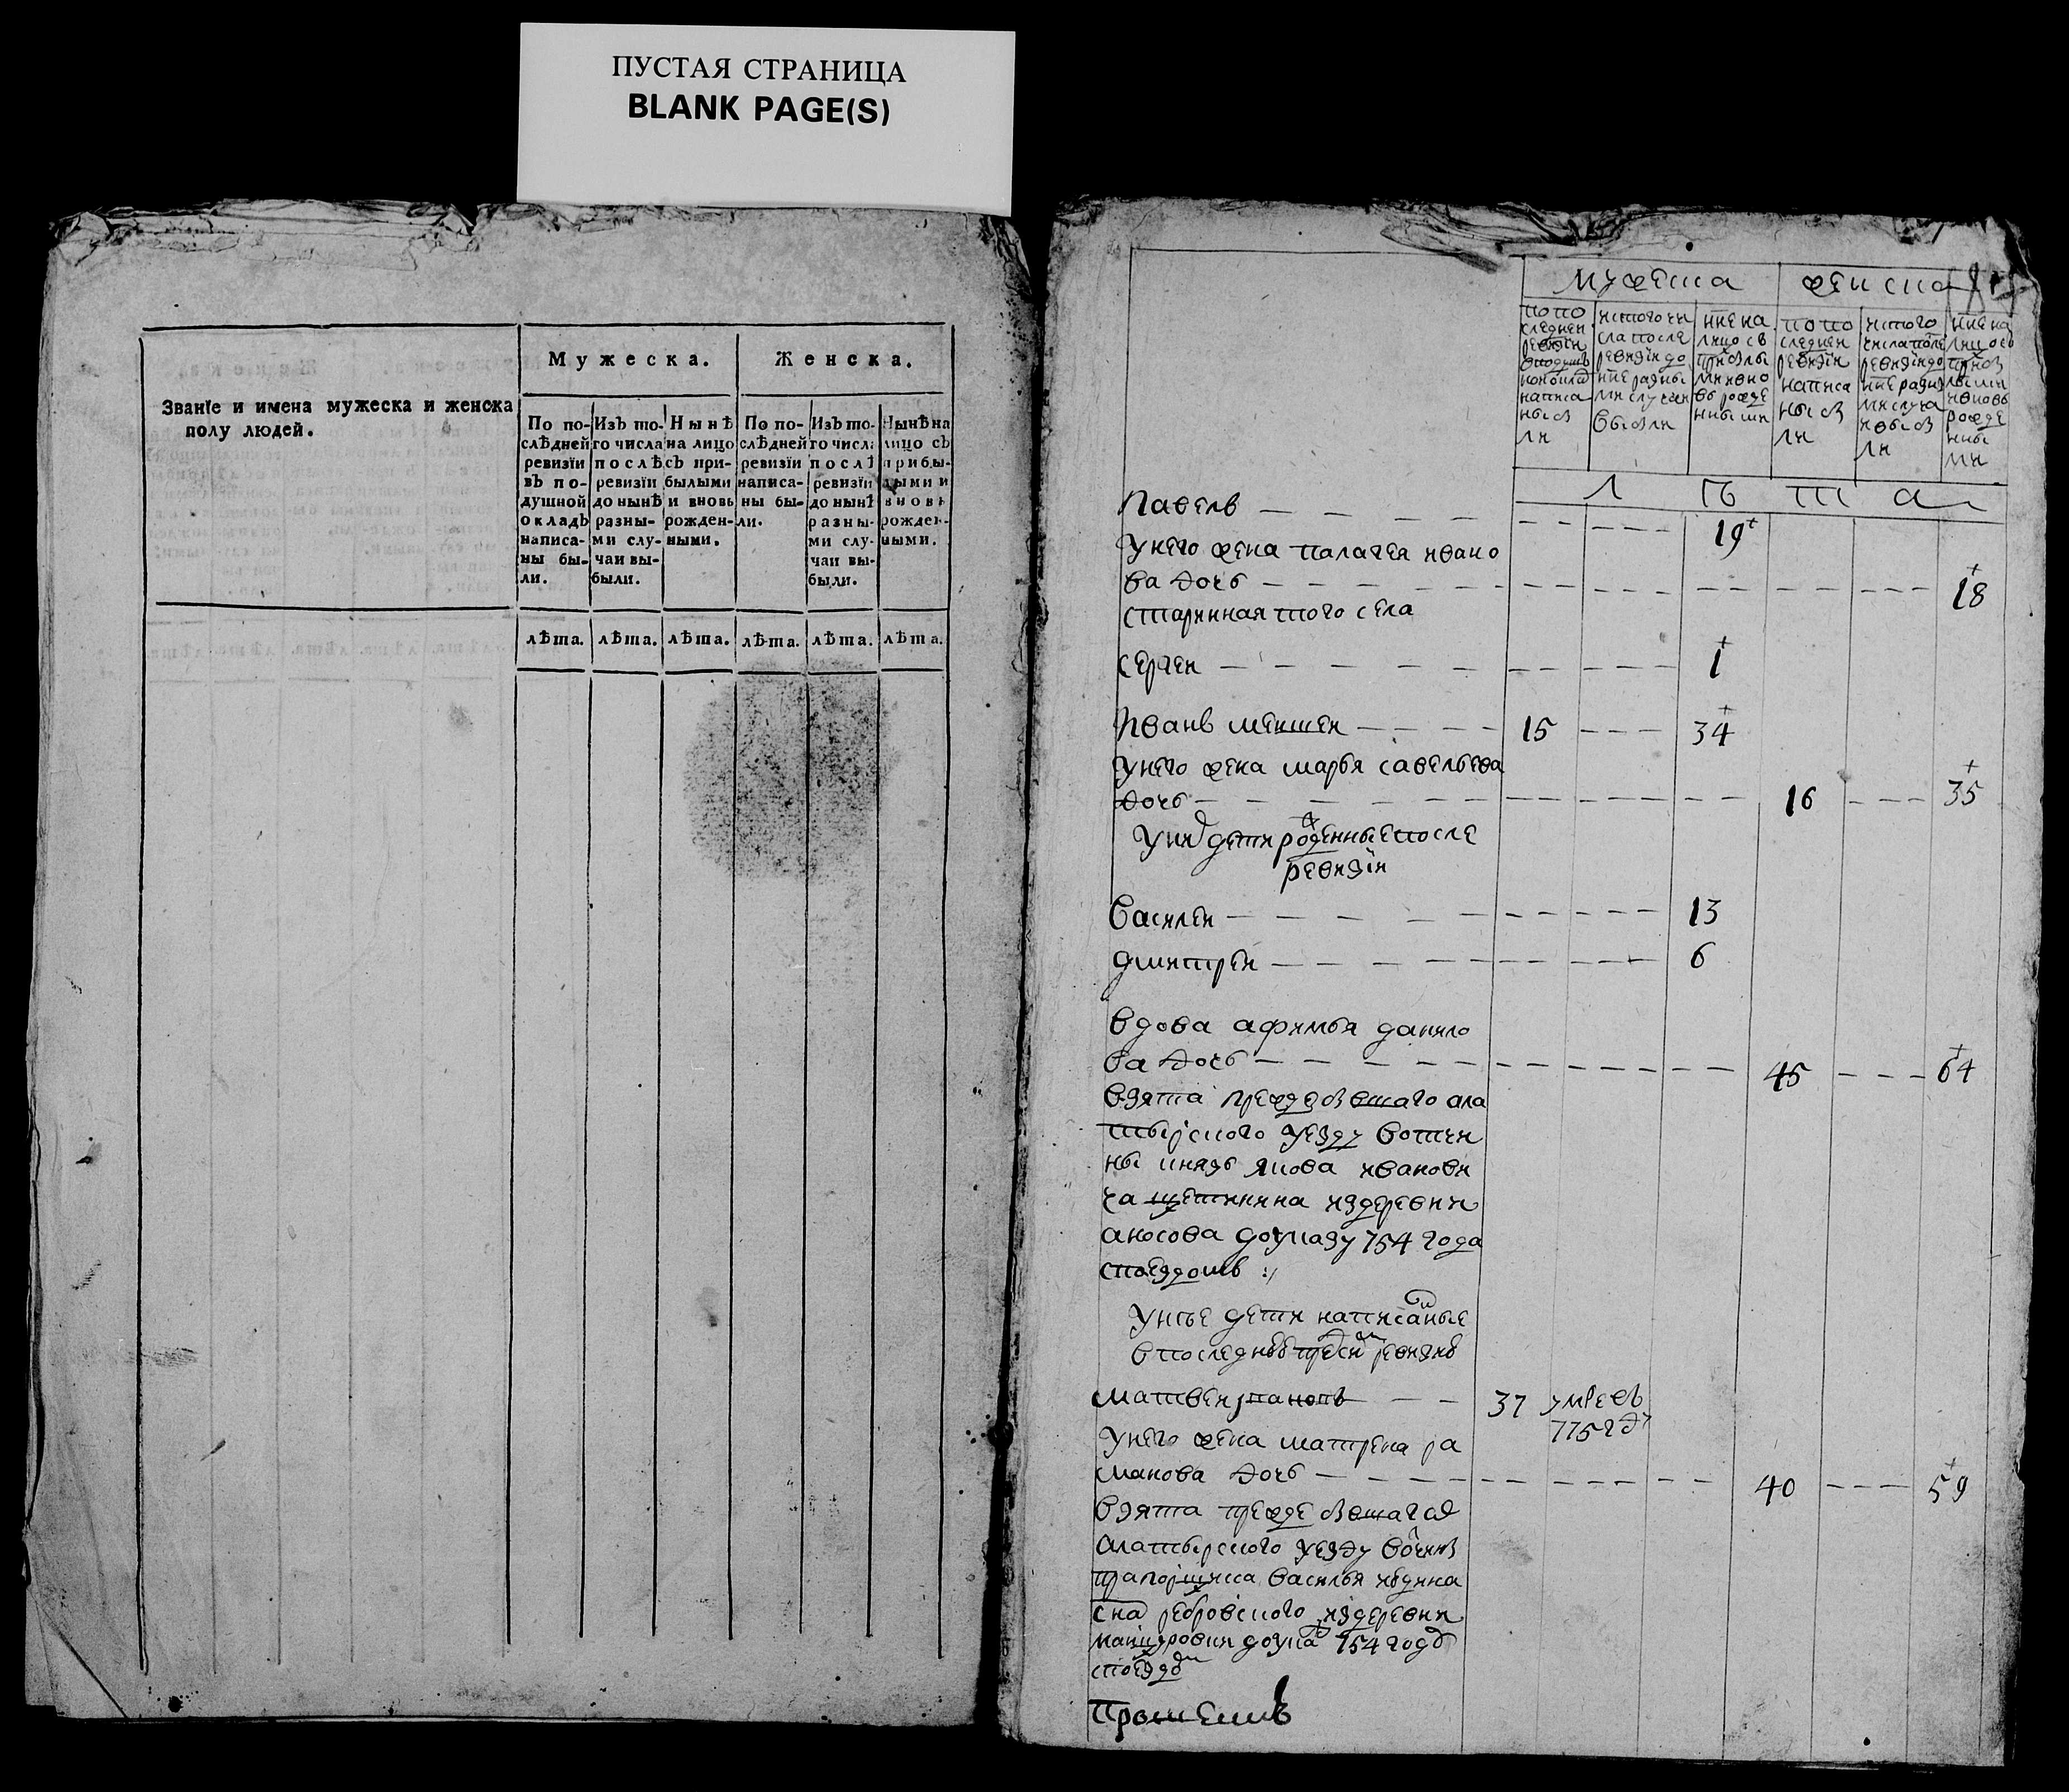 ПУСТАЯ СТРАНИЦА
BLANK PAGE(S)
Званїе и имена мужеска и женска
полу людей.
Мужеска.
Женска.
По по-
слѣдней
ревизїи
въ по-
душной
окладъ
написа-
ны бы-
ли.
Изъ то-
го числа
послѣ
ревизїи
до нынѣ
разны-
ми слу-
чаи вы-
были.
Нынѣ
на лицо
съ при-
былыми
и вновь
рожден-
ными.
По по-
слѣдней
ревизїи
написа-
ны бы-
ли.
Изъ то-
го числа
послѣ
ревизїи
до нынѣ
разны-
ми слу-
чаи вы-
были.
Нынѣ на
лицо съ
прибы-
лыми и
вновь
рожден-
ными.
лѣта. лѣта. лѣта. лѣта. лѣта. лѣта.
мужеска женска
попо
следнеи
ревизїи
написа
ны бы
ли
истого чи
сла после
ревизїи до
нне разны
ми случаи
выбыли
нне на
лицо съ
прибылы
ми ивно
въ рожде
нными
попо
следнеи
ревизїи
написа
ны бы
ли
истого
числа после
ревизїи до
нне разны
ми случа
ивыбы
ли
нне на
лицо со
прибы
лыми
ивновь
рожде
нны
ми
л ѣ т а
Павелъ 19
унего жена палагея ивано
ва дочь 18
старинная того села
сергеи 1
Иванъ меншеи 15 34
унего жена марья савельева
дочь 16 35
уних дети рожденные после
ревизїи
Василеи 13
дмитреи 6
вдова афимья данило
ва дочь 45 64
взята преждебывшаго ала
тырского уезду вотчи
ны князь якова иванови
ча щетинина издеревни
аносова доуказу 754 года
споездомъ :/
унее дети написаные
впоследнюю пред сим ревизию
матвеи романовъ 37 умре въ
775 гду
унего жена матрена ра
манова дочь 40 59
взята прежде бывшаго
алатырского уезду вочины
прапорщика василья
сна ребровского издеревни
доуказа 754 году
споездом
Прошешъ